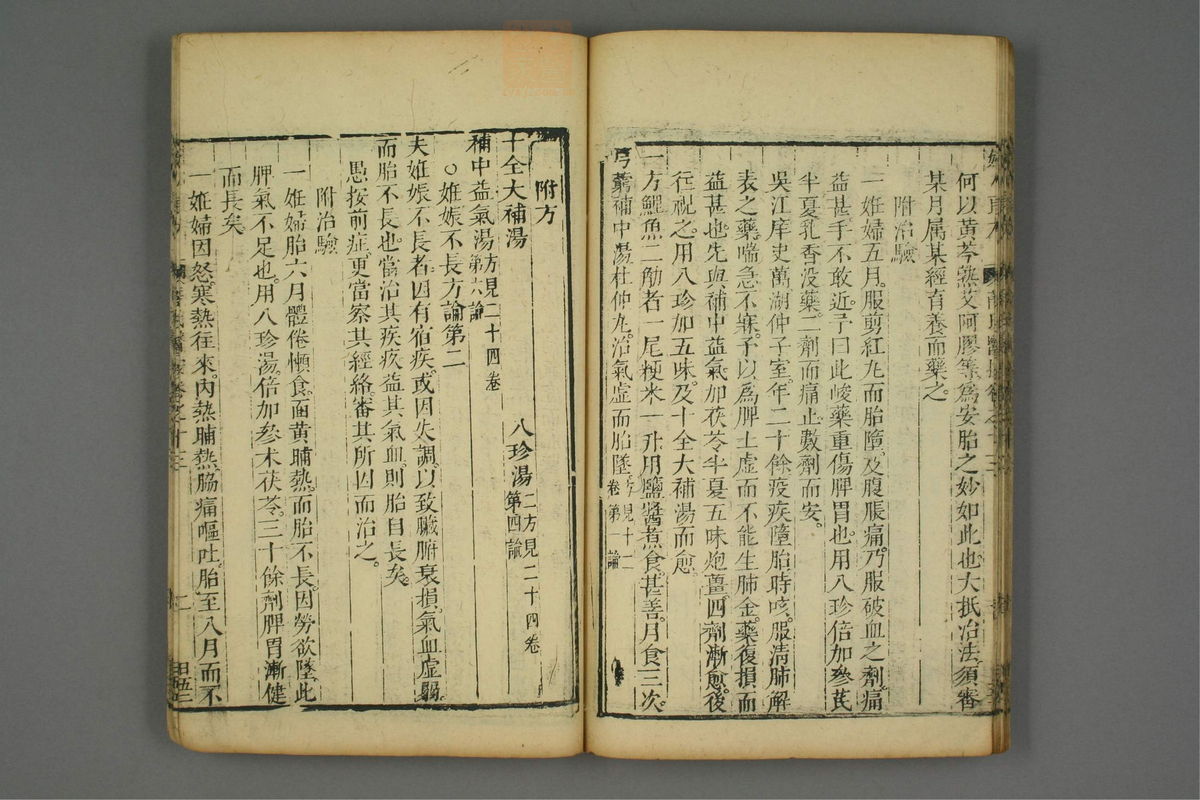 何以黄芩熟艾阿膠等爲安胎之妙如此也大抵治法須審
某月屬某經育養而藥之
附治驗
一姙婦五月服剪紅丸而胎墮及腹脹痛乃服破血之劑痛
益甚手不敢近予曰此峻藥重傷脾胃也用八珍倍加參芪
半夏乳香没藥二劑而痛止數劑而安
吳江庠史萬湖仲子室年二十餘疫疾墮胎時咳服清肺解
表之藥喘急不寐予以爲脾土虛而不能生肺金藥復損而
益甚也先與補中益氣加茯苓半夏五味炮薑四劑漸愈後
徃視之用八珍加五味及十全大補湯而愈
一方鯉魚二觔者一尾粳米一升用鹽醬煮食甚善月食三次
芎藭補中湯杜仲丸治氣虛而胎墜方見十二卷第一論
附方
十全大補湯　八珍湯二方見二十四卷第四論
補中益氣湯方見二十四卷第六論
○姙娠不長方論第二
夫姙娠不長者因有宿疾或因失調以致臟腑衰損氣血虛弱
而胎不長也當治其疾疢益其氣血則胎自長矣
愚按前症更當察其經絡審其所因而治之
附治驗
一姙婦胎六月體倦懶食面黄晡熱而胎不長因勞欲墜此
脾氣不足也用八珍湯倍加參朮茯苓三十餘劑脾胃漸健
而長矣
一姙婦因怒寒熱往來内熱晡熱脇痛嘔吐胎至八月而不